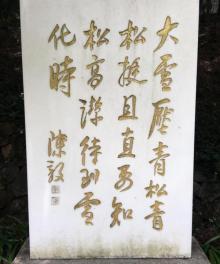 大雪壓青松青
松挺且直要知
松高潔待到雪
化時
陳毅